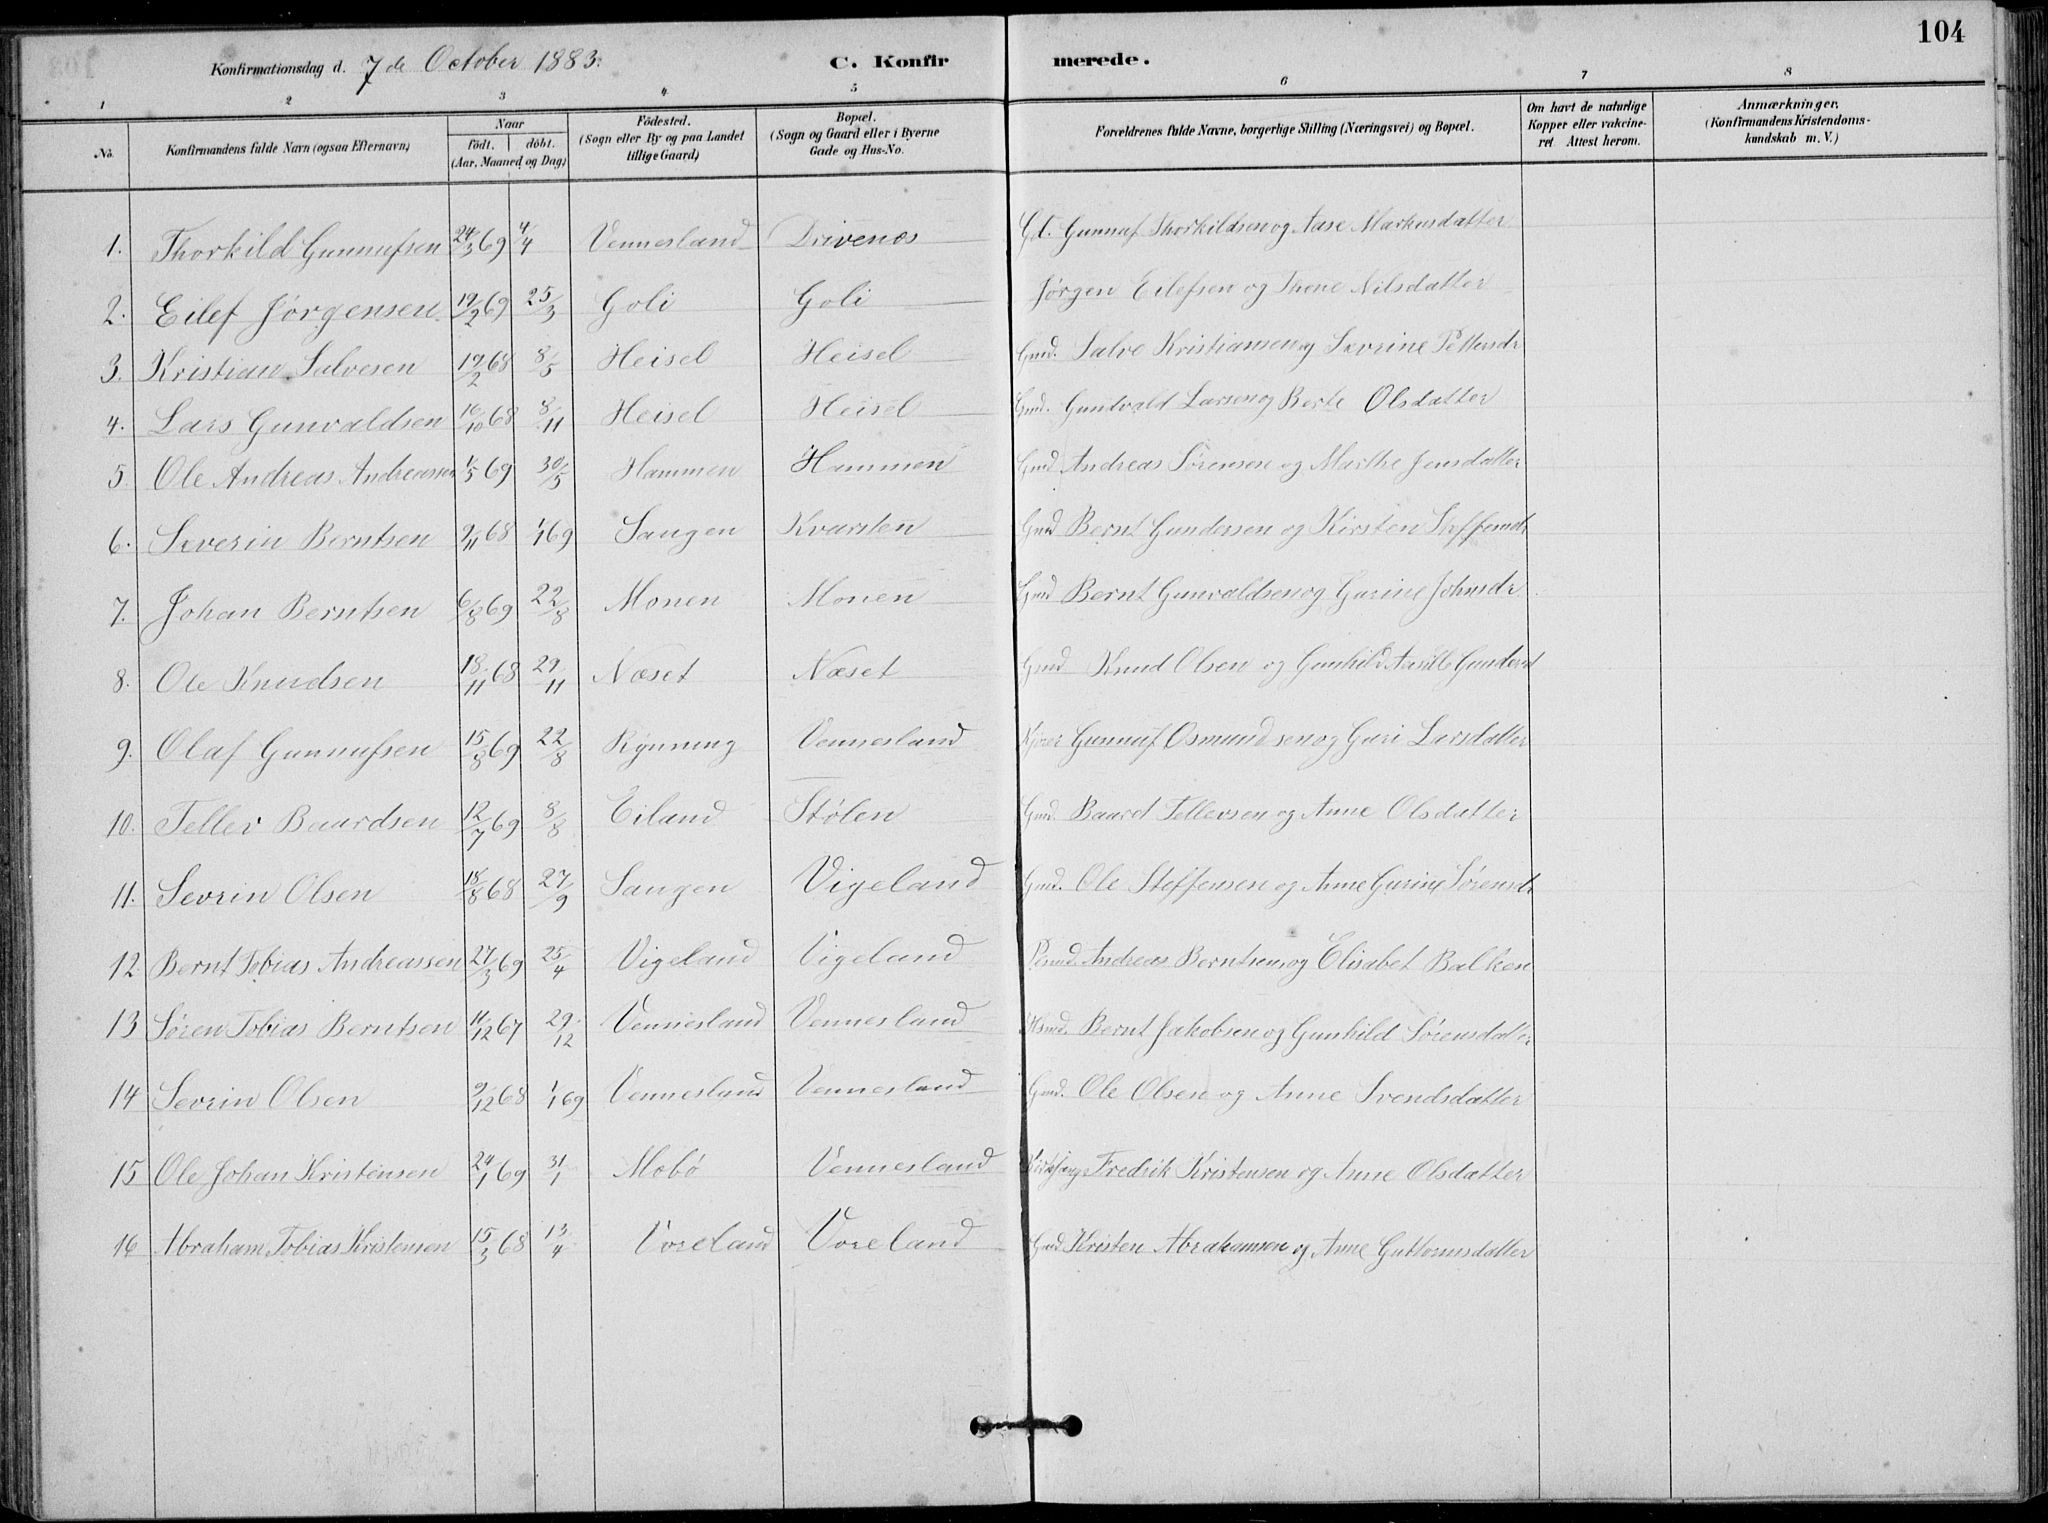 104
Konfirmationsdag d. 7de October 1883. C. Konfirmerede.
1 2 3 4 5 6 7 8
No. Konfirmandens fulde Navn (ogsaa Efternavn) Naar födt. döbt. (Aar, Maaned og Dag) Födested. (Sogn eller By og paa Landet tillige Gaard) Bopæl. (Sogn og Gaard eller i Byerne Gade og Hus-No. Forældrenes fulde Navne, borgerlige Stilling (Næringsvei) og Bopæl. Om havt de naturlige Kopper eller vakcineret. Attest herom. Anmærkninger. (Konfirmandens Kristendomskundskab m. V.)
1. Thorkild Gunnufsen 24/3 69 4/4 Vennesland Drivenes Gd. Gunnuf Thorkildsen og Aase Markusdatter
2. Eilef Jørgensen 19/2 69 25/3 Goli Goli Jørgen Eilefsen og Thene Nilsdatter
3. Kristian Salvesen 19/2 68 8/5 Heisel Heisel Gmd. Salve Kristiansen og Sevrine Pettersdr
4. Lars Gunvaldsen 16/10 68 8/11 Heisel Heisel Gmd. Gundvald Larsen og Berte Olsdatter
5. Ole Andreas Andreassen 1/5 69 30/5 Hammen Hammen Gmd Andreas Sørensen og Marthe Jensdatter
6. Severin Berntsen 9/11 68 1/1 69 Sangen Kvarsten Gmd Bernt Gundersen og Kirsten Steffensdr
7. Johan Berntsen 6/8 69 22/8 Monen Monen Gmd Bernt Gunvaldsen og Gurine Johnsdr
8. Ole Knudsen 18/11 68 29/11 Næset Næset Gmd Knud Olsen og Gunhild Aasille Gundersd
9. Olaf Gunnufsen 15/8 69 22/8 Rynning Vennesland Gunnuf Osmundsen og Guri Larsdatter
10. Tellev Baardsen 12/7 69 8/8 Eiland Stølen Gmd. Baard Tellevsen og Anne Olsdatter
11. Sevrin Olsen 18/8 68 27/9 Sangen Vigeland Gmd. Ole Steffensen og Anne Gurine Sørensdr
12 Bernt Tobias Andreassen 27/3 69 25/4 Vigeland Vigeland Andreas Berntsen og Elisabet Balken
13 Søren Tobias Berntsen 11/12 67 29/12 Vennesland Vennesland Bernt Jakobsen og Gunhild Sørensdatter
14 Sevrin Olsen 9/12 68 1/1 69 Vennesland Vennesland Gmd. Ole Olsen og Anne Svendsdatter
15 Ole Johan Kristensen 24/1 69 31/1 Mobø Vennesland Fredrik Kristensen og Anne Olsdatter
16 Abraham Tobias Kristensen 15/3 68 13/4 Voreland Voreland Gmd Kristen Abrahamsen og Anne Guttormsdatter